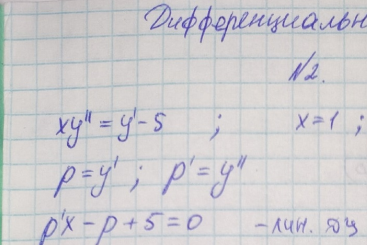 Дифференциальн
№2.
xy'' = y' - 5 ; x = 1 ;
p = y' ; p' = y''
p'x - p + 5 = 0 - лин. ДУ